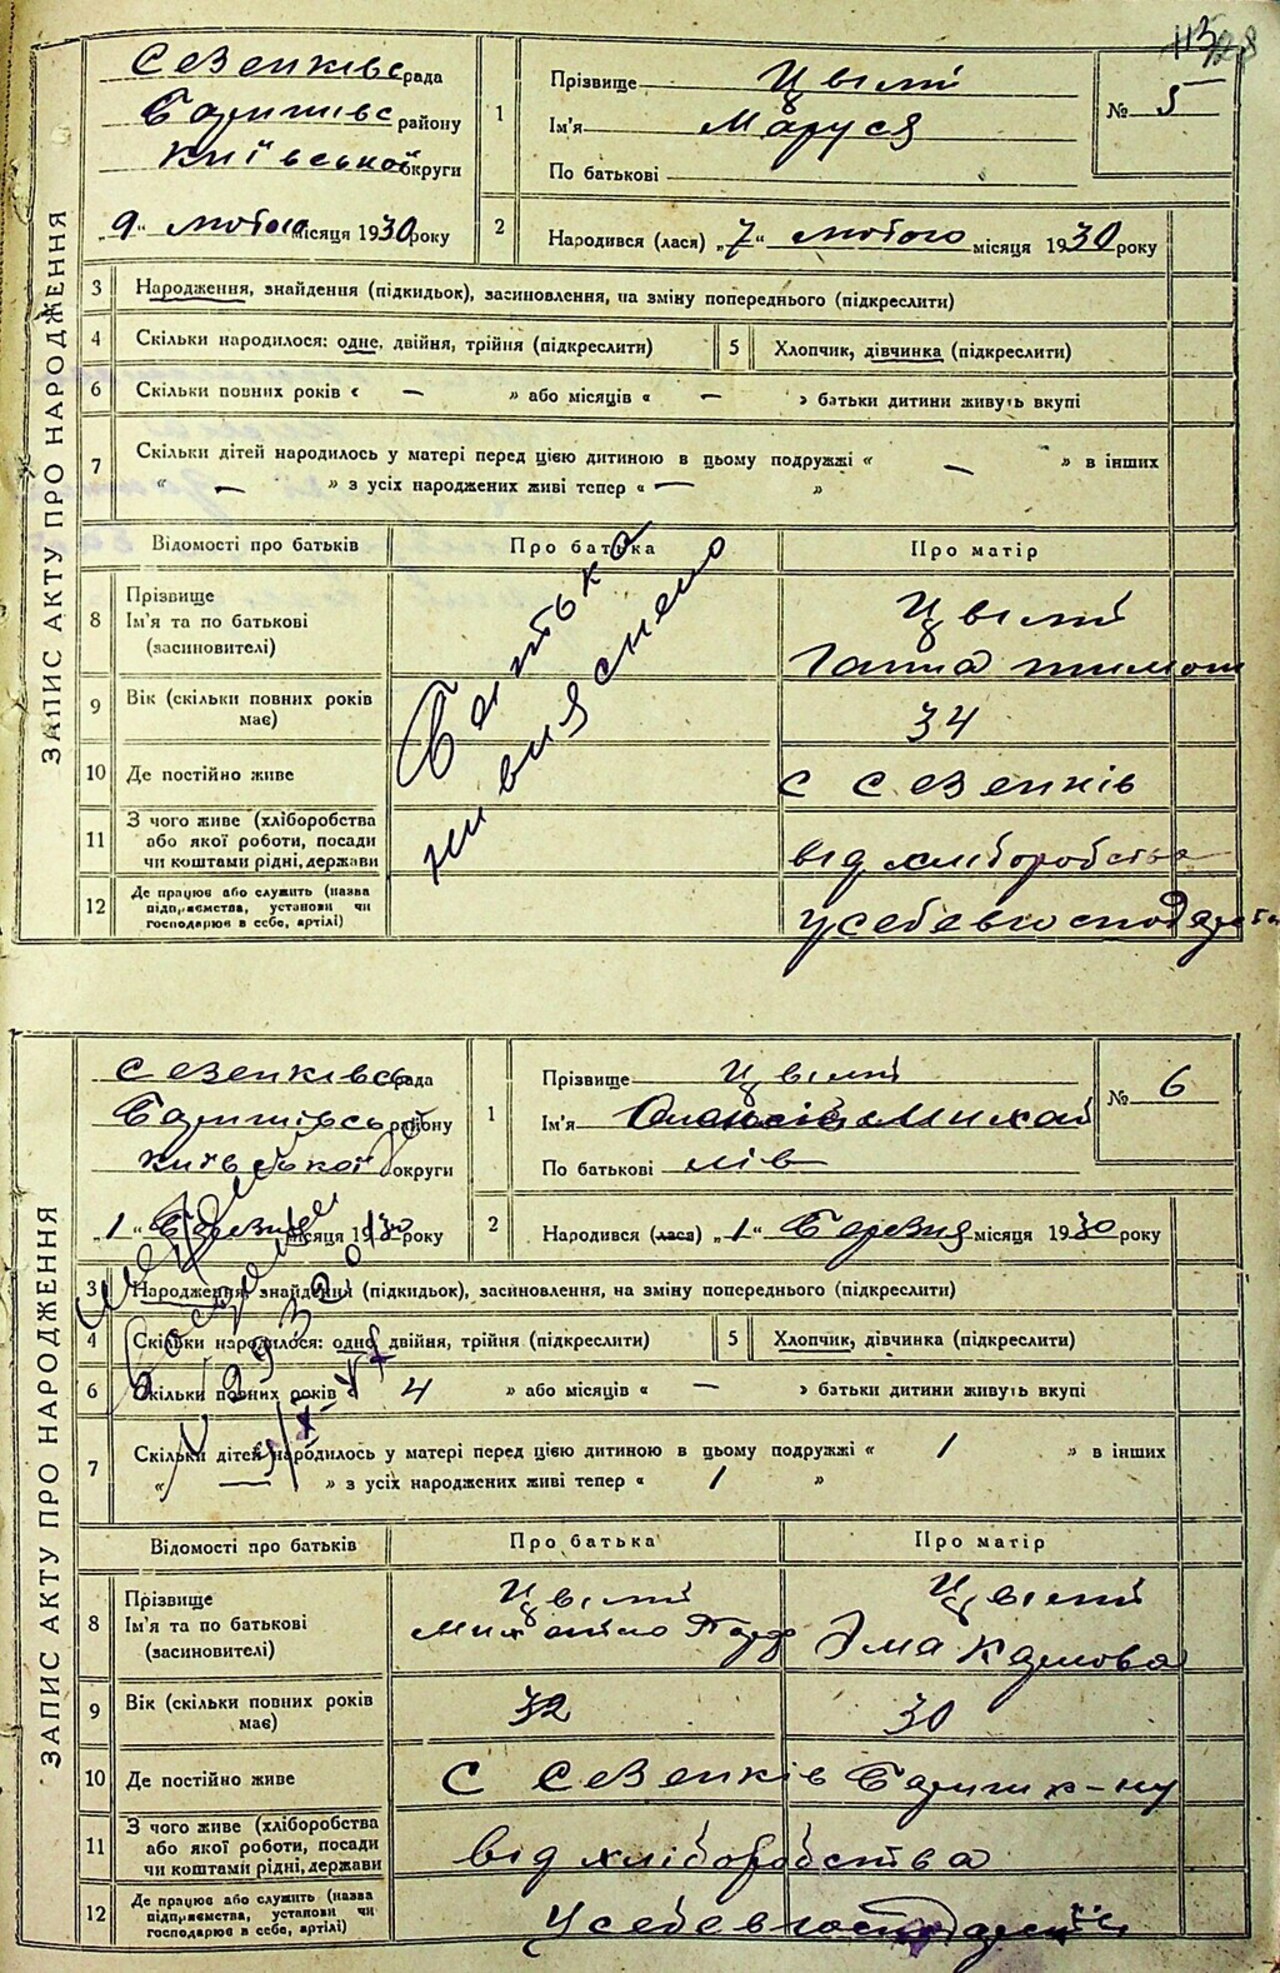 113
128
ЗАПИС АКТУ ПРО НАРОДЖЕННЯ
Сезенківс рада
Баришівс району
Київської округи
„9“ лютого місяця 1930 року
1 Прізвище Цвілий
Ім'я Маруся
По батькові
№ 5
2 Народився (лася) „7“ лютого місяця 1930 року
3 Народження, знайдення (підкидьок), засиновлення, на зміну попереднього (підкреслити)
4 Скільки народилося: одне, двійня, трійня (підкреслити)
5 Хлопчик, дівчинка (підкреслити)
6 Скільки повних років « — » або місяців « — » батьки дитини живуть вкупі
7 Скільки дітей народилось у матері перед цією дитиною в цьому подружжі « — » в інших
« — » з усіх народжених живі тепер « — »
Відомості про батьків Про батька Про матір
8 Прізвище
Ім'я та по батькові
(засиновителі)
Цвілий
Ганна Тимош
Батька
не вияснено
9 Вік (скільки повних років
має)
34
10 Де постійно живе
С Сезенків
11 З чого живе (хліборобства
або якої роботи, посади
чи коштами рідні, держави
від хліборобства
12 Де працює або служить (назва
підприємства, установи чи
господарює в себе, артілі)
У себе в господарстві
ЗАПИС АКТУ ПРО НАРОДЖЕННЯ
Сезенківсь рада
Баришівсь району
Київської округи
„1“ Березня місяця 1930 року
1 Прізвище Цвілий
Ім'я Михай
По батькові лів
№ 6
2 Народився (лася) „1“ Березня місяця 1930 року
3 Народження, знайдення (підкидьок), засиновлення, на зміну попереднього (підкреслити)
4 Скільки народилося: одне, двійня, трійня (підкреслити)
5 Хлопчик, дівчинка (підкреслити)
6 Скільки повних років « 4 » або місяців « — » батьки дитини живуть вкупі
7 Скільки дітей народилось у матері перед цією дитиною в цьому подружжі « 1 » в інших
« — » з усіх народжених живі тепер « 1 »
Відомості про батьків Про батька Про матір
8 Прізвище
Ім'я та по батькові
(засиновителі)
Цвілий
Михайло
Цвілий
Эма Карлова
9 Вік (скільки повних років
має)
32 30
10 Де постійно живе
С Сезенків Бариш р-ну
11 З чого живе (хліборобства
або якої роботи, посади
чи коштами рідні, держави
від хліборобства
12 Де працює або служить (назва
підприємства, установи чи
господарює в себе, артілі)
У себе в господарстві